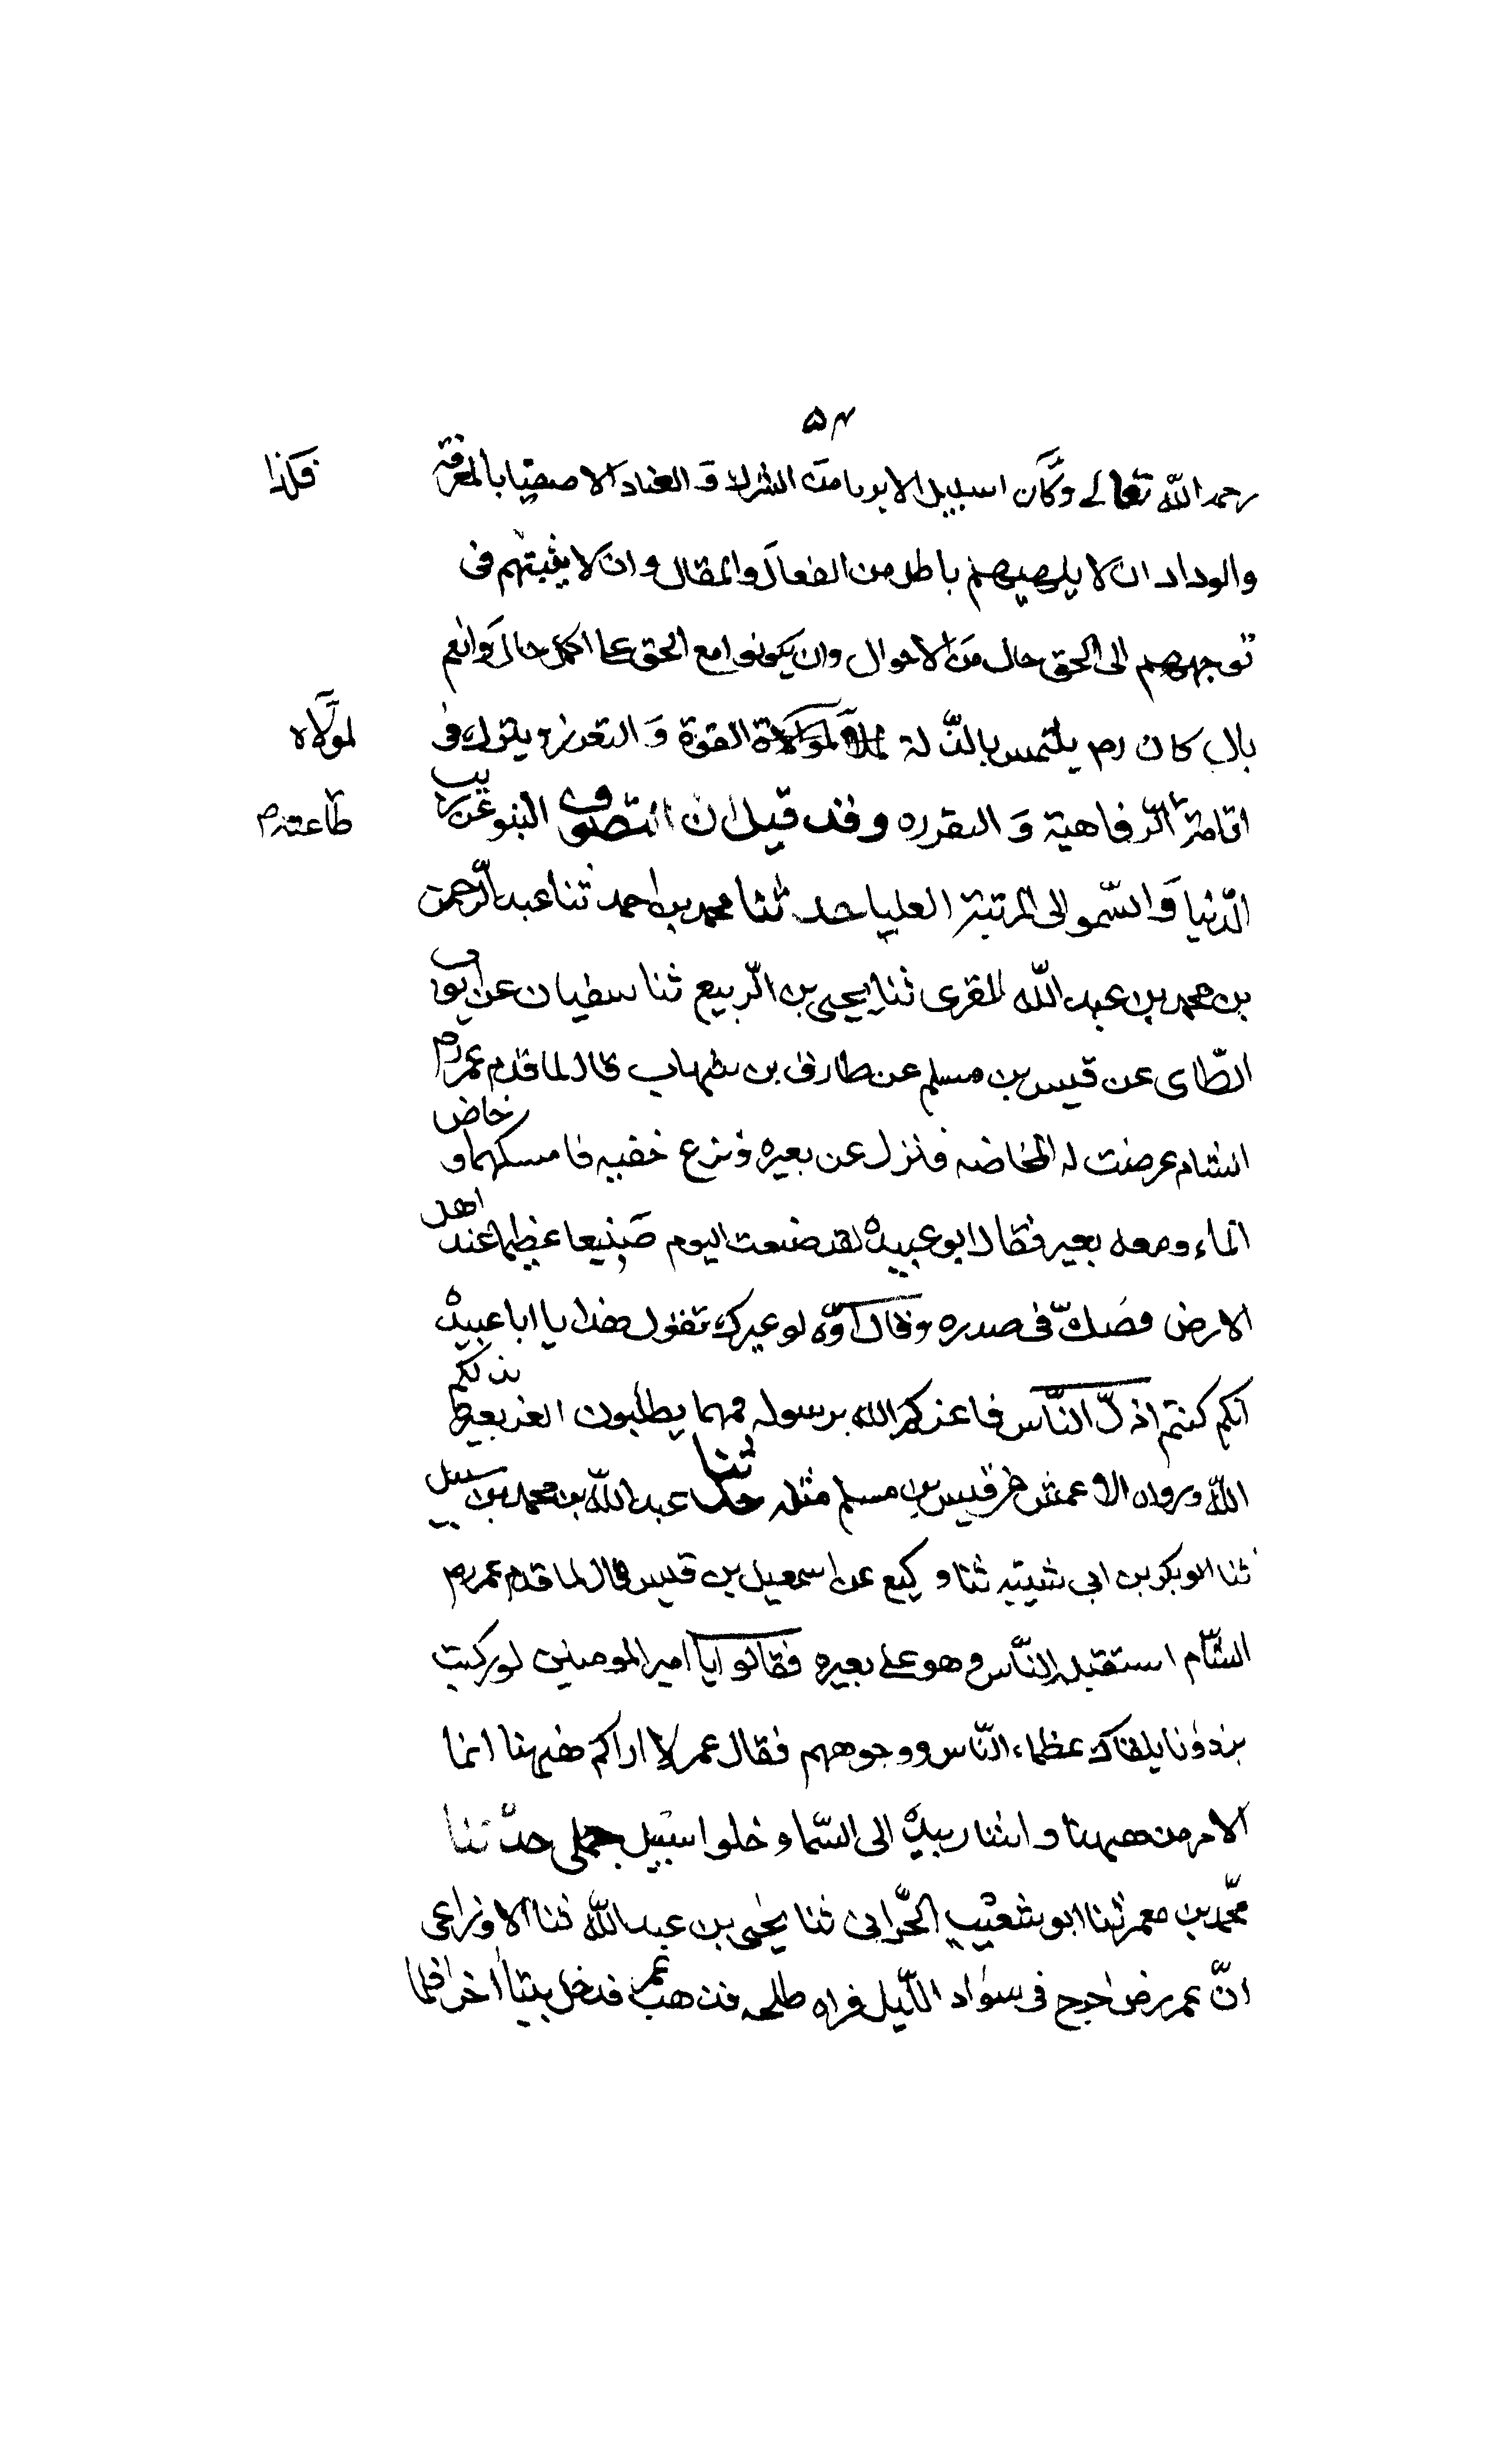 ۵۴
رحمه الله تعالى وكان السبيل الابرياء من الشرك و العناد الاصفيا بالمعرفة
فكذا
والوداد ان لا يلهيهم باطل من الفعال والمقال وان لا يثبتهم فى
توجههم الى الحق حال من الاحوال وان يكونوا مع الحق على اكمل حال وانعم
بال كان رض يلتمس بالذلة لمولاة القوة و التعزز ويترك فى
لمولاه
اقامة الرفاهية و التقرره وقد قيل ان التصوف النبو عن رتب
طاعته
الدنيا و السمو الى المرتبة العليا حدثنا محمد بن احمد ثنا عبد الرحمن
بن محمد بن عبد الله المقرى ثنا يحيى بن الربيع ثنا سفيان عن ايوب
الطاى عن قيس بن مسلم عن طارق بن شهاب قال لما قدم عمر رض
الشام عرضت له المخاضه فنزل عن بعيره ونزع خفيه فامسكهما و خاض
الماء ومعه بعير فقال ابو عبيده لقد صنعت اليوم صنيعا عظيما عند اهل
الارض فصك فى صدره وقال اوه لو غيرك تقول هذا يا ابا عبيده
انكم كنتم اذل الناس فاعزكم الله برسوله فمهما يطلبون العز بغيره يذلكم
الله ورواه الاعمش عن قيس بن مسلم مثله حدثنا عبد الله بن محمد بن سبل
ثنا ابو بكر بن ابى شيبه ثنا وكيع عن اسمعيل بن قيس قال لما قدم عمر رض
الشام استقبله الناس و هو على بعيره فقالوا يا امير المومنين لو ركبت
برذونا يلقاك عظماء الناس ووجوههم فقال عمر لا اراكم ههنا انما
الامر من ههنا و اشار بيده الى السما و خلوا سبيل جملى حدثنا
محمد بن معمر ثنا ابو شعيب الحرانى ثنا يحيى بن عبد الله ثنا الاوزاعى
ان عمر رض خرج فى سواد الليل فراه طلحه فذهب عمر فدخل بيتا اخر فلما